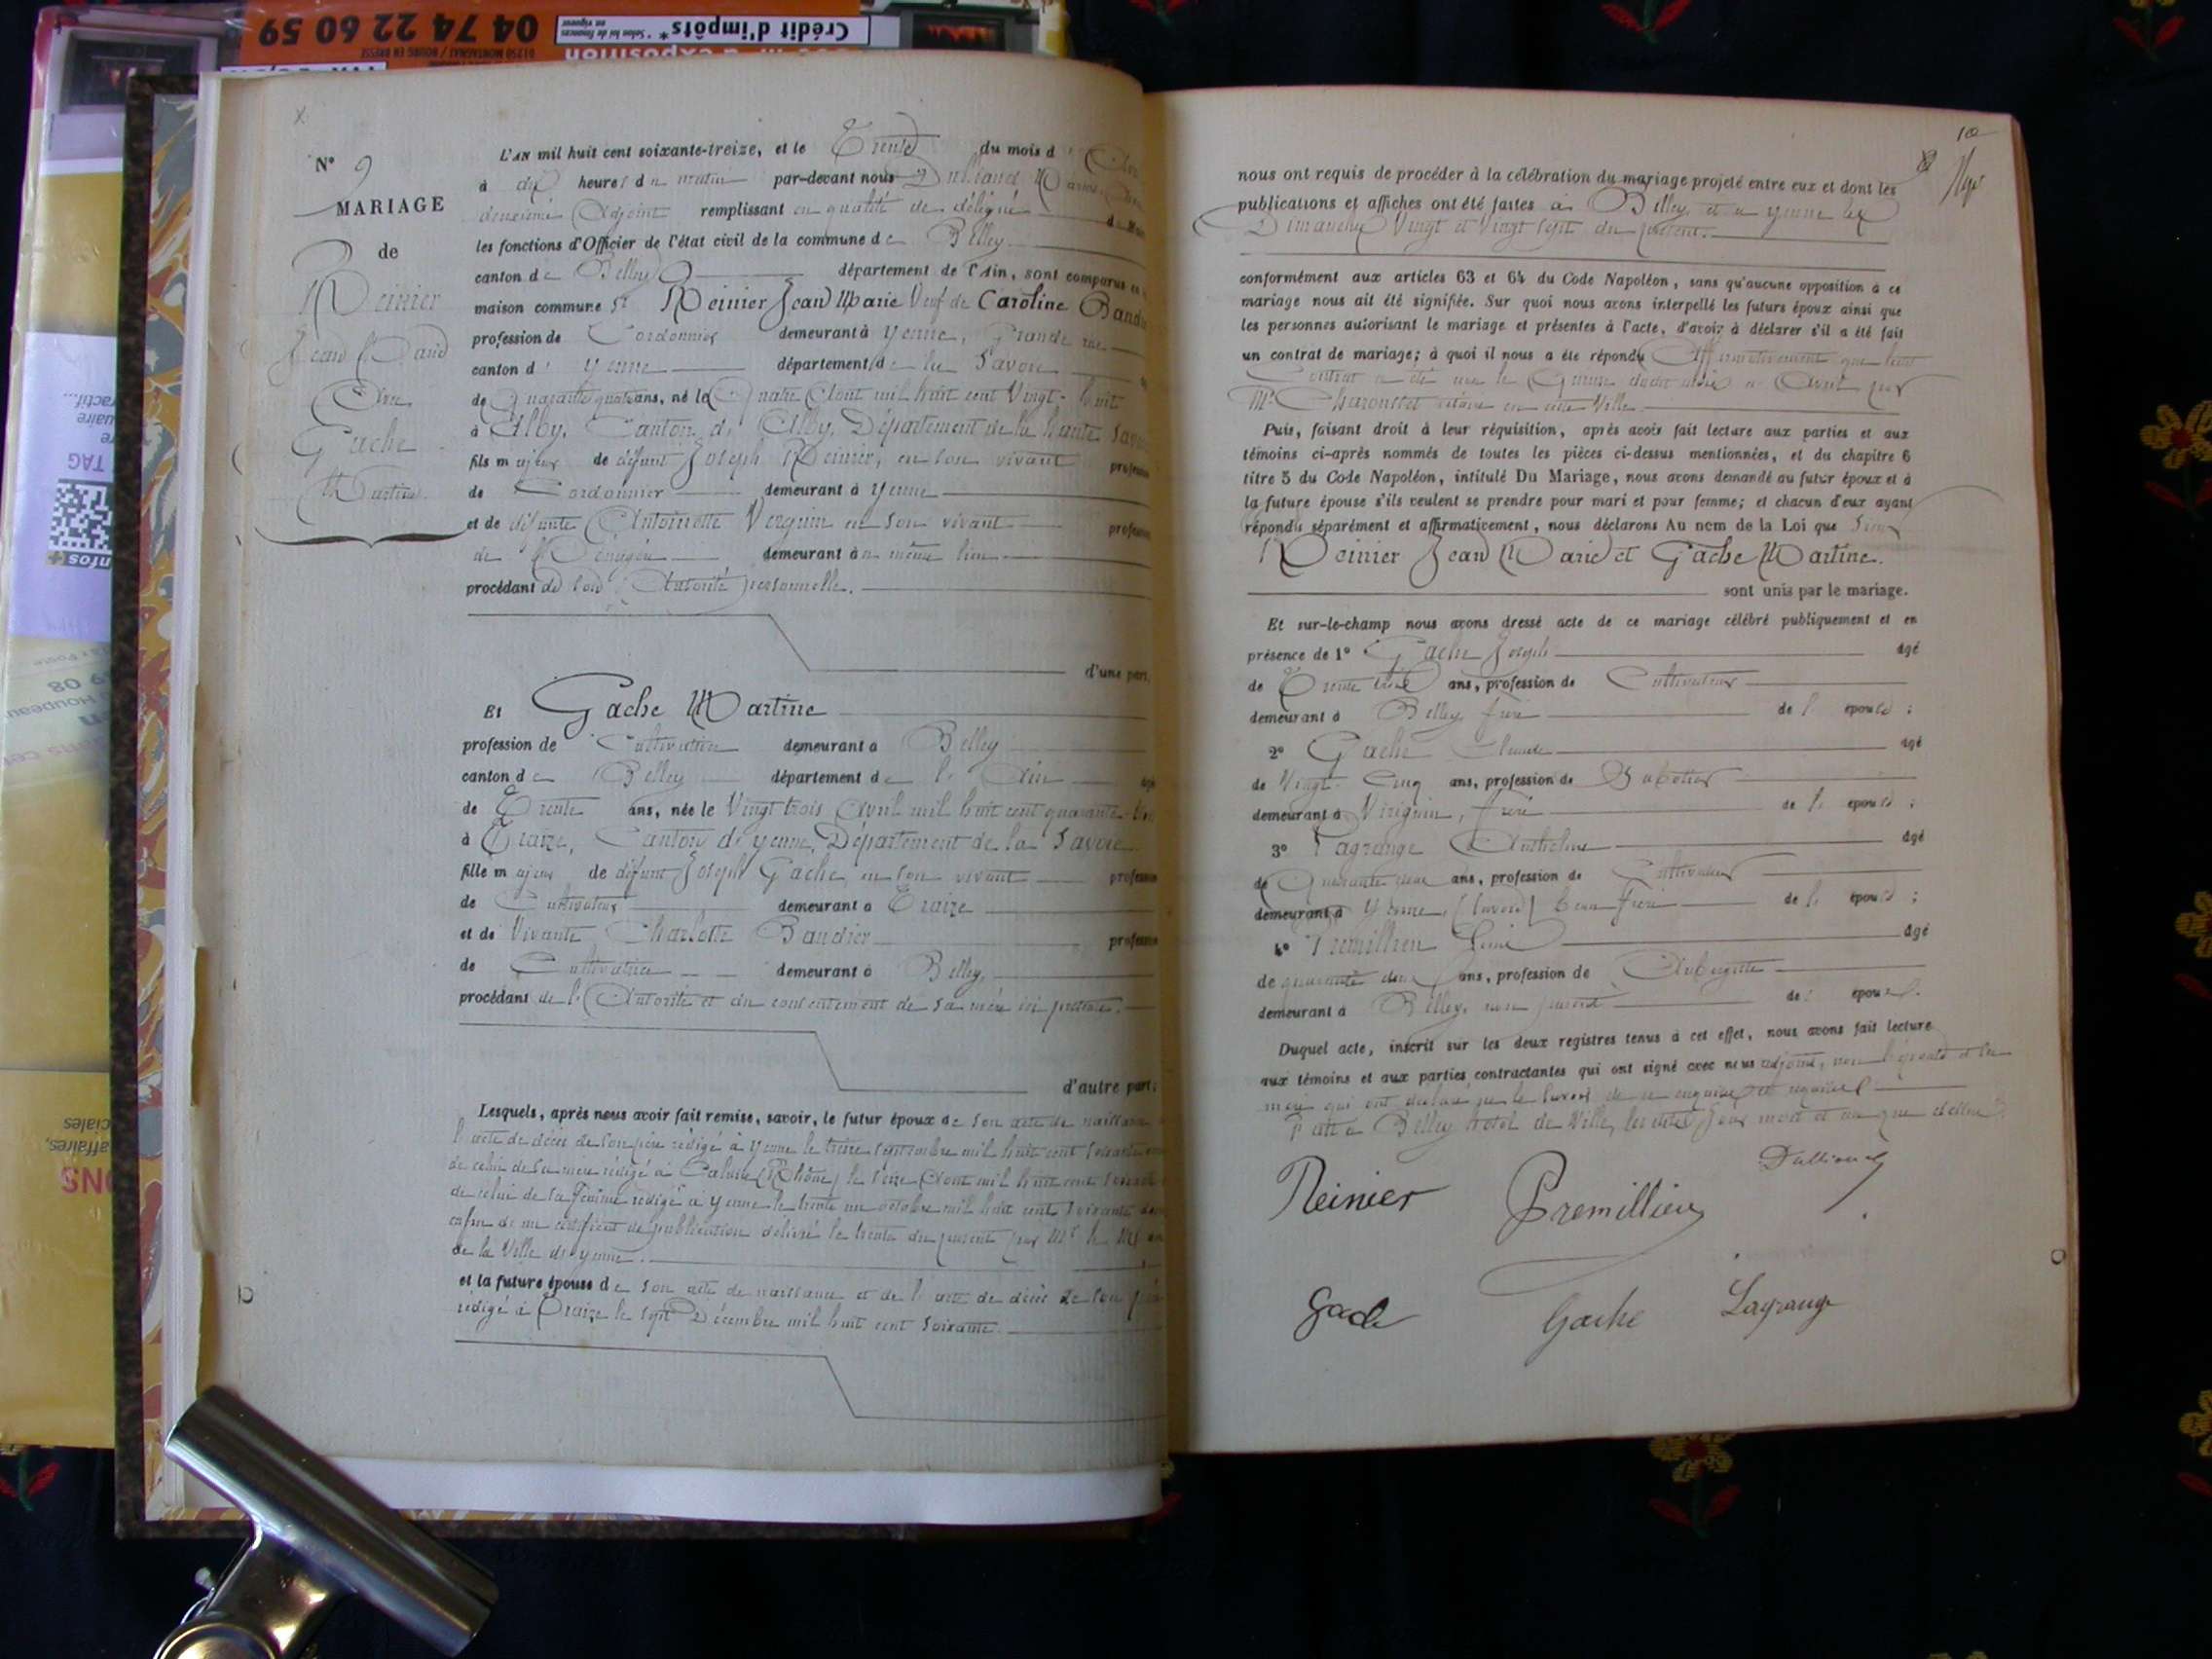 04 74 22 60 59
Crédit d'impôts*
* Selon loi de finances
en vigueur
01250 MONTAGNAT / BOURG EN BRESSE
exposition
TAG
N° 9
MARIAGE
de
Reinier
Jean Marie
Avec
Gache
Martine
L'AN mil huit cent soixante-treize, et le Trente du mois d
à dix heures du matin par-devant nous
deuxième Adjoint remplissant en qualité de délégué
les fonctions d'Officier de l'état civil de la commune de Belley
canton de Belley département de l'Ain, sont comparus en
maison commune Sr Reinier Jean Marie Veuf de Caroline
profession de Cordonnier demeurant à Yenne, Grande rue
canton d' Yenne département de la Savoie
de Quarante quatre ans, né le Quatre Août mil huit cent Vingt-huit
à Alby, Canton d' Alby, Département de la haute Savoie
fils majeur de défunt Joseph Reinier, en son vivant profession
de Cordonnier demeurant à Yenne
et de défunte Antoinette Verguin en son vivant profession
de Ménagère demeurant au même lieu
procédant de son Autorité personnelle.
d'une part,
Et Gache Martine
profession de Cultivatrice demeurant à Belley
canton de Belley département de l' Ain
de Trente ans, née le Vingt trois Avril mil huit cent quarante-trois
à Traize, Canton d'Yenne, Département de la Savoie
fille majeure de défunt Joseph Gache, en son vivant profession
de Cultivateur demeurant à Traize
et de Vivante Charlotte Baudier profession
de Cultivatrice demeurant à Belley,
procédant de l' Autorité et du consentement de sa mère ici présente.
d'autre part;
Lesquels, après nous avoir fait remise, savoir, le futur époux de son acte de naissance
l'acte de décès de son père rédigé à Yenne le treize septembre mil huit cent soixante
de celui de sa mère rédigé à Caluire (Rhône) le seize Août mil huit cent soixante
de celui de sa femme rédigé à Yenne le trente un octobre mil huit cent soixante
enfin de un certificat de publication délivré le trente du présent par Mr le
de la Ville d'Yenne.
et la future épouse de son acte de naissance et de l'acte de décès de son père
rédigé à Traize le sept Décembre mil huit cent soixante.
10
nous ont requis de procéder à la célébration du mariage projeté entre eux et dont les
publications et affiches ont été faites à Belley et à Yenne les
Dimanches Vingt et Vingt sept du présent.
conformément aux articles 63 et 64 du Code Napoléon, sans qu'aucune opposition à ce
mariage nous ait été signifiée. Sur quoi nous avons interpellé les futurs époux ainsi que
les personnes autorisant le mariage et présentes à l'acte, d'avoir à déclarer s'il a été fait
un contrat de mariage; à quoi il nous a été répondu Affirmativement que leur
Contrat a été reçu le Avril par
Me Charousset notaire en cette Ville.
Puis, faisant droit à leur réquisition, après avoir fait lecture aux parties et aux
témoins ci-après nommés de toutes les pièces ci-dessus mentionnées, et du chapitre 6
titre 5 du Code Napoléon, intitulé Du Mariage, nous avons demandé au futur époux et à
la future épouse s'ils veulent se prendre pour mari et pour femme; et chacun d'eux ayant
répondu séparément et affirmativement, nous déclarons Au nom de la Loi que
Reinier Jean Marie et Gache Martine.
sont unis par le mariage.
Et sur-le-champ nous avons dressé acte de ce mariage célébré publiquement et en
présence de 1° Gache Joseph âgé
de Trente ans, profession de Cultivateur
demeurant à Belley, frère de l' épouse;
2° Gache Claude âgé
de Vingt-Cinq ans, profession de Sabotier
demeurant à Virignin, frère de l' épouse;
3° Lagrange Anthelme âgé
de Quarante deux ans, profession de Cultivateur
demeurant à Yenne, (Savoie) beau frère de l' épouse;
4° Premillieu âgé
de quarante deux ans, profession de Aubergiste
demeurant à Belley, non parent de épou
Duquel acte, inscrit sur les deux registres tenus à cet effet, nous avons fait lecture
aux témoins et aux parties contractantes qui ont signé avec nous adjoint, non l'épouse et la
mère qui ont déclaré ne le savoir de ce enquises et requises
Fait à Belley hotel de Ville, les dits jour mois et an que dessus.
Reinier Premillieu
Gache Gache Lagrange